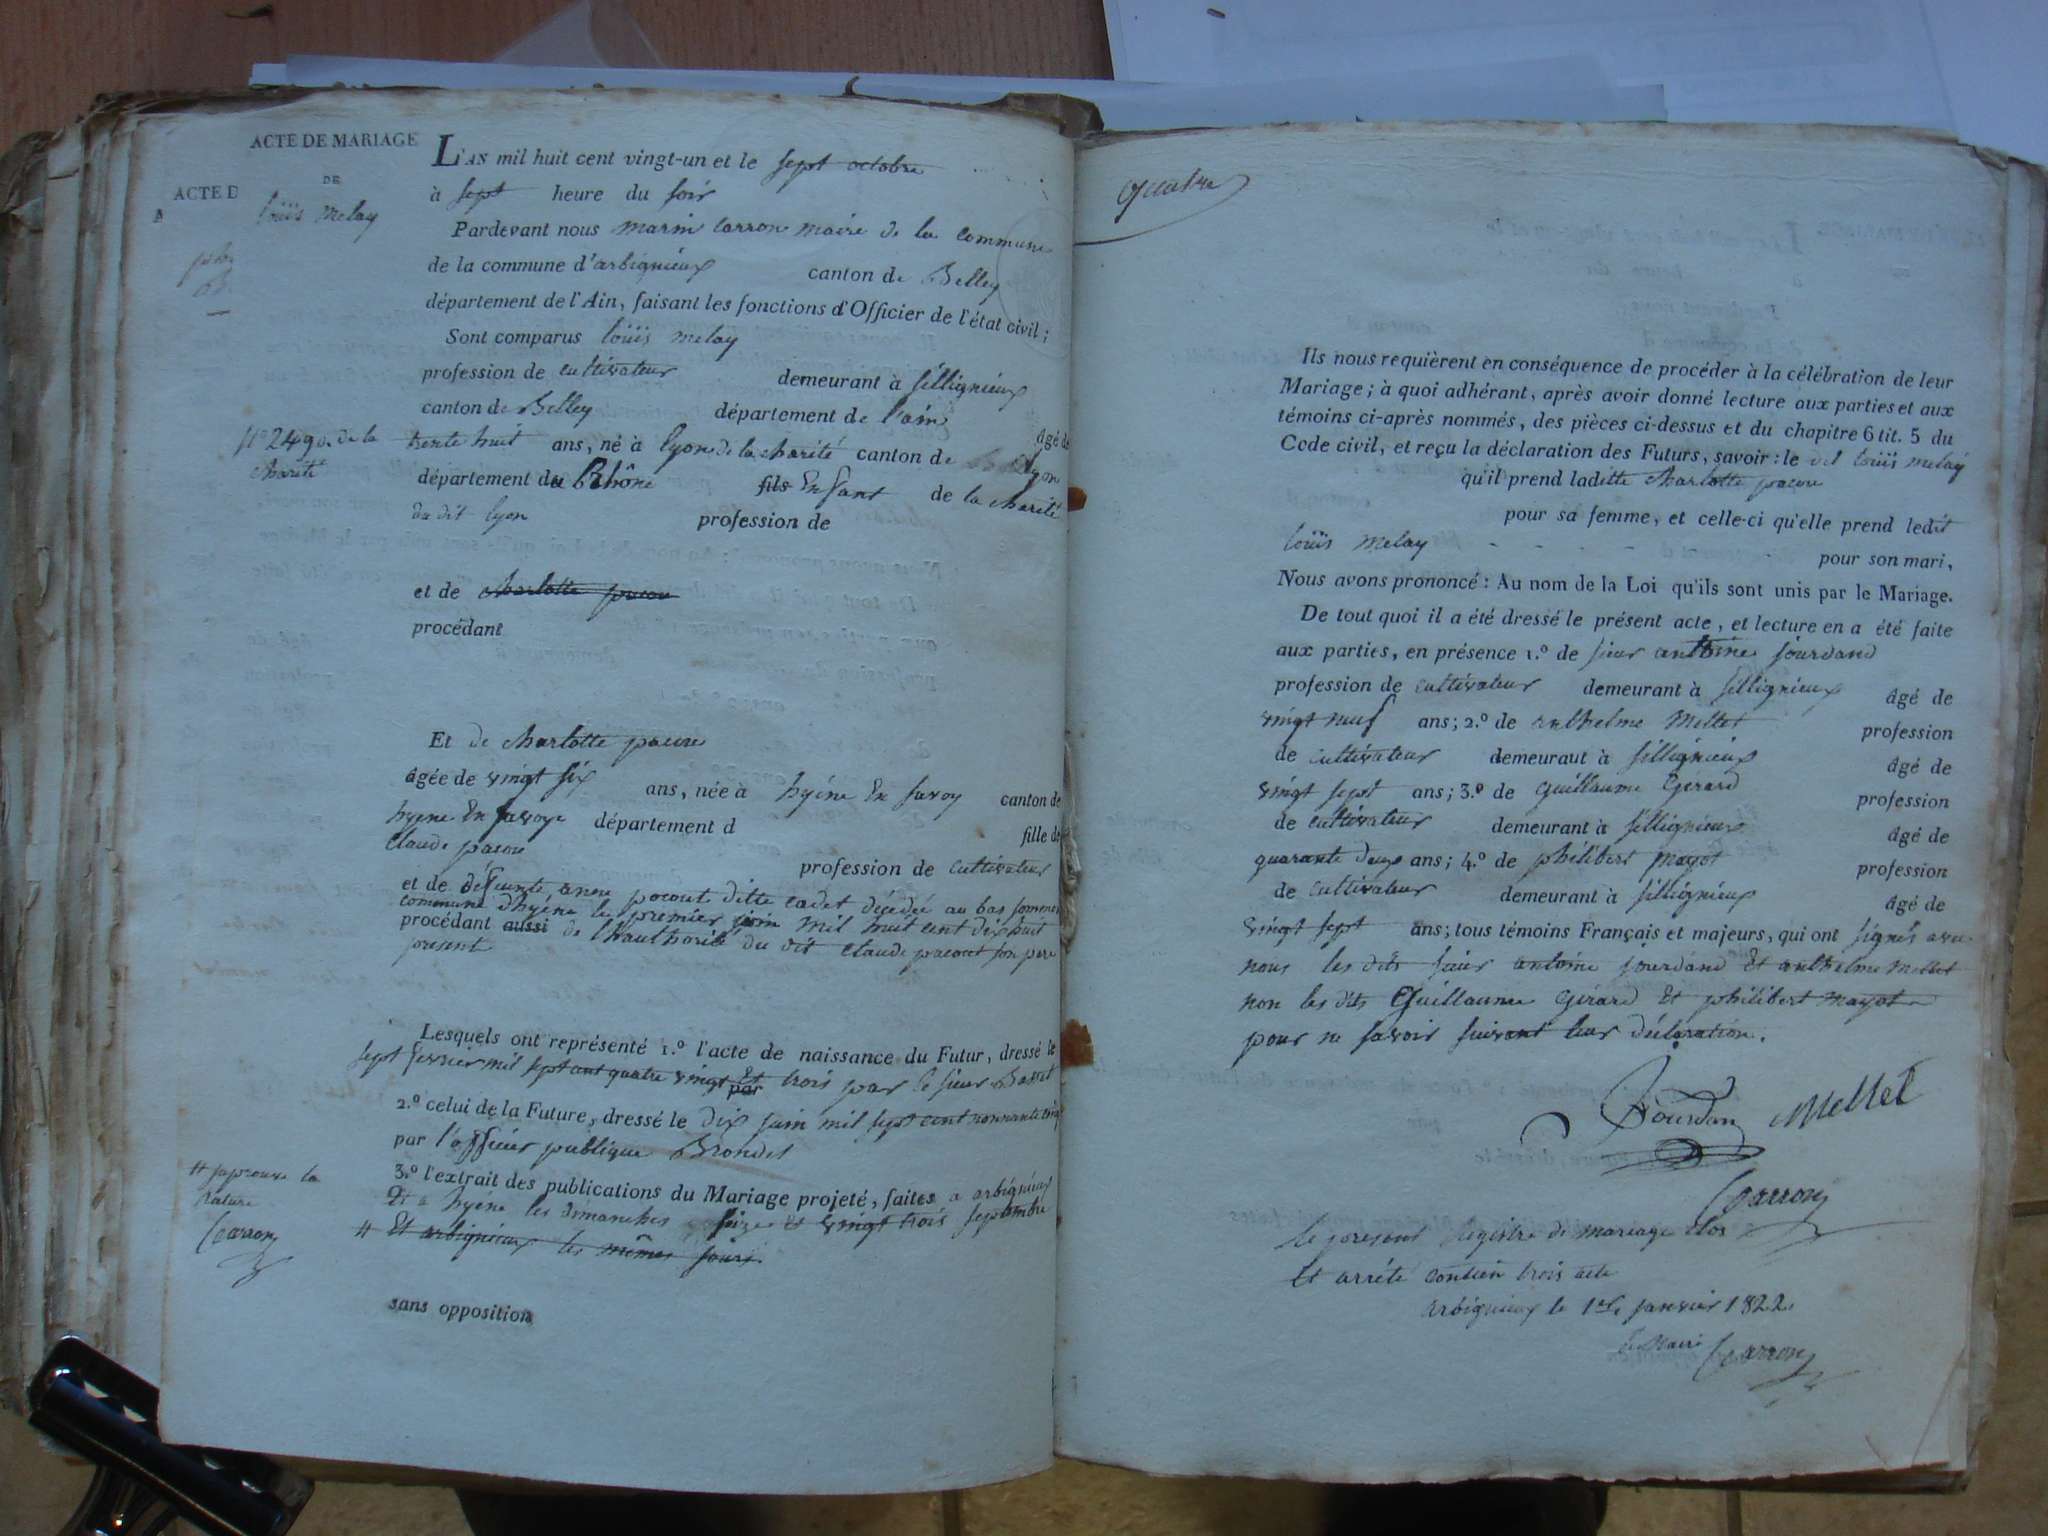 ACTE DE MARIAGE
DE
louïs melay
ACTE D
L'AN mil huit cent vingt-un et le sept octobre
à sept heure du soir
Pardevant nous marin Carron maire de la commune
de la commune d'arbignieux canton de Belley
département de l'Ain, faisant les fonctions d'Officier de l'état civil;
Sont comparus louïs melay
profession de cultivateur demeurant à sillignieux
canton de Belley département de l'ain âgé de
N° 249 de la
charité
trente huit ans, né à lyon de la charité canton de lyon
département du Rhône fils Enfant de la charité
du dit lyon profession de
et de charlotte pacou
procédant
Et de charlotte pacou
âgée de vingt six ans, née à hyéne En savoy canton de
hyene En savoye département d fille de
Claude pacou
profession de cultivateur
et de défeunte anne pocout ditte cadet décédée au bas sommer
commune d'hyéne le premier juin mil huit cent dix huit
procédant aussi de l'hauthorité du dit Claude pacout son pere
present
Lesquels ont représenté 1.° l'acte de naissance du Futur, dressé le
sept fevrier mil sept cent quatre vingt Et trois par le sieur Basset
par
2.° celui de la Future, dressé le dix juin mil sept cent nonnante cinq
par l'officier publique Brondel
3.° l'extrait des publications du Mariage projeté, faites a arbignieux
Et a hyéne les dimanches seize et vingt trois septembre
# Et arbignieux les mêmes jours
# japrouve la
rature
Carron
sans opposition
quatre
Ils nous requièrent en conséquence de procéder à la célébration de leur
Mariage; à quoi adhérant, après avoir donné lecture aux parties et aux
témoins ci-après nommés, des pièces ci-dessus et du chapitre 6 tit. 5 du
Code civil, et reçu la déclaration des Futurs, savoir: le dit louïs melay
qu'il prend ladette charlotte pacou
pour sa femme, et celle-ci qu'elle prend ledit
louïs melay - - - - - pour son mari,
Nous avons prononcé: Au nom de la Loi qu'ils sont unis par le Mariage.
De tout quoi il a été dressé le présent acte, et lecture en a été faite
aux parties, en présence 1.° de sieur antoine jourdand
profession de cultivateur demeurant à sillignieux âgé de
vingt neuf ans; 2.° de anthelme Mellet profession
de cultivateur demeurant à sillignieux âgé de
vingt sept ans; 3.° de Guillaume Gérard profession
de cultivateur demeurant à sillignieux âgé de
quarante deux ans; 4.° de philibert mayot profession
de cultivateur demeurant à sillignieux âgé de
vingt sept ans; tous témoins Français et majeurs, qui ont signés avec
nous les dits sieur antoine jourdand Et anthelme mellet
non les dits Guillaume Gérard Et philibert mayot
pour ne savoir suivant leur déclaration.
Jourdan Mellet
Carron
le present Registre de mariage clos
Et arrété contien trois acte
arbignieux le 1er janvier 1822
le Maire Carron